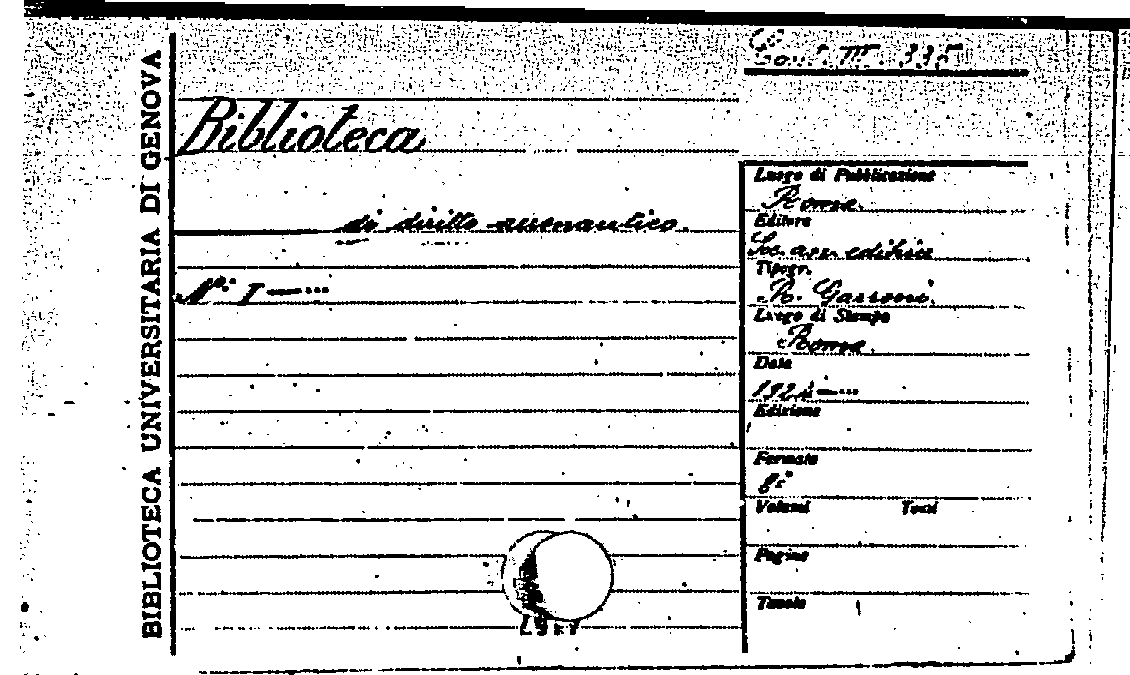 BIBLIOTECA UNIVERSITARIA DI GENOVA
335
Biblioteca
di diritto aeronautico.
N° I
Luogo di Pubblicazione
Roma.
Editore
Soc. an. editrice
Tipogr.
R. Garroni.
Luogo di Stampa
Roma.
Data
Edizione
Formato
8°
Volumi Tomi
Pagine
Tavole